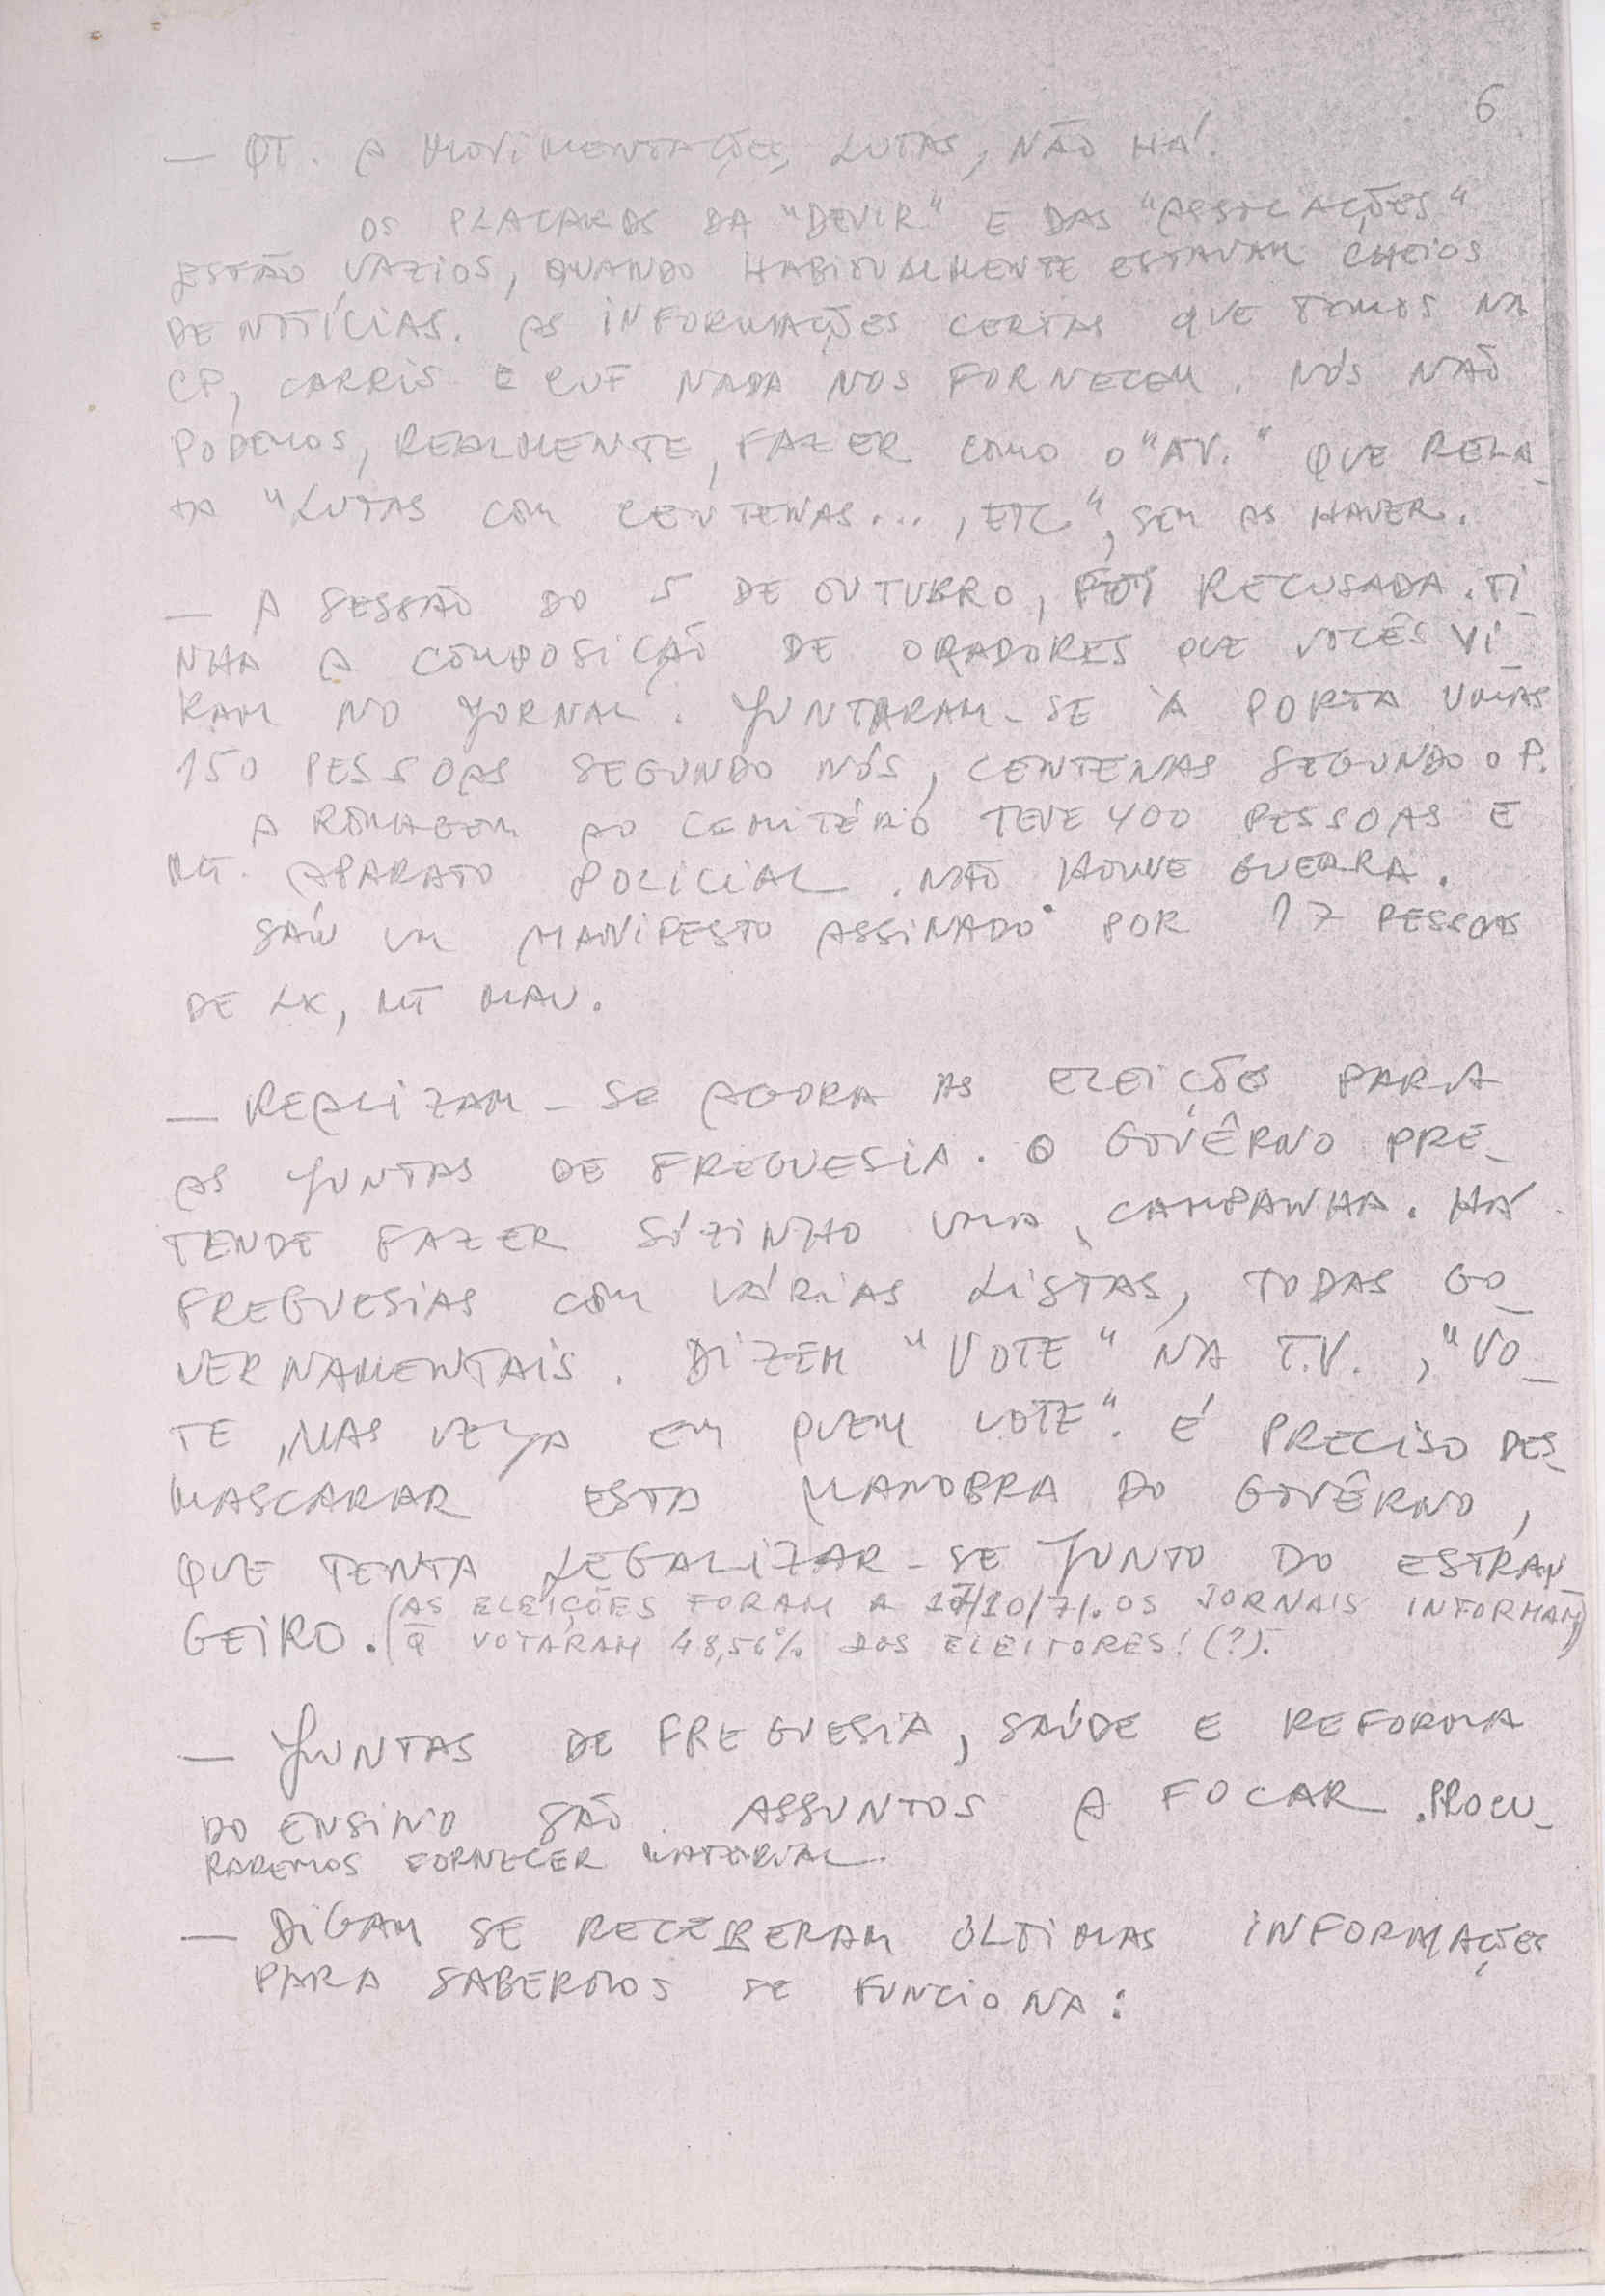 6
— QT. A MOVIMENTAÇÕES, LUTAS, NÃO HÁ.
OS PLACARDS DA "DEVIR" E DAS "ASSOCIAÇÕES"
ESTÃO VAZIOS, QUANDO HABITUALMENTE ESTAVAM CHEIOS
DE NOTÍCIAS. AS INFORMAÇÕES CERTAS QUE TEMOS NA
CP, CARRIS E CUF NADA NOS FORNECEM. NÓS NÃO
PODEMOS, REALMENTE, FAZER COMO O "AV." QUE RELA_
TA "LUTAS COM CENTENAS..., ETC", SEM AS HAVER.
— A SESSÃO DO 5 DE OUTUBRO, FOI RECUSADA. TI_
NHA A COMPOSIÇÃO DE ORADORES QUE VOCÊS VI_
RAM NO JORNAL. JUNTARAM-SE À PORTA UMAS
150 PESSOAS SEGUNDO NÓS, CENTENAS SEGUNDO O P.
A ROMAGEM AO CEMITÉRIO TEVE 400 PESSOAS E
MT. APARATO POLICIAL. NÃO HOUVE GUERRA.
SAÍU UM MANIFESTO ASSINADO POR 17 PESSOAS
DE LX, MT MAU.
— REALIZAM-SE AGORA AS ELEIÇÕES PARA
AS JUNTAS DE FREGUESIA. O GOVÊRNO PRE_
TENDE FAZER SÓZINHO UMA CAMPANHA. HÁ
FREGUESIAS COM VÁRIAS LISTAS, TODAS GO_
VERNAMENTAIS. DIZEM "VOTE" NA T.V., "VO_
TE, MAS VEJA EM QUEM VOTE". É PRECISO DES_
MASCARAR ESTA MANOBRA DO GOVÊRNO,
QUE TENTA LEGALIZAR-SE JUNTO DO ESTRAN_
GEIRO. (AS ELEIÇÕES FORAM A 17/10/71. OS JORNAIS INFORMAM
Q̄ VOTARAM 48,56% DOS ELEITORES! (?).)
— JUNTAS DE FREGUESIA, SAÚDE E REFORMA
DO ENSINO SÃO ASSUNTOS A FOCAR. PROCU_
RAREMOS FORNECER MATERIAL.
— DIGAM SE RECEBERAM ÚLTIMAS INFORMAÇÕES
PARA SABERMOS SE FUNCIONA: